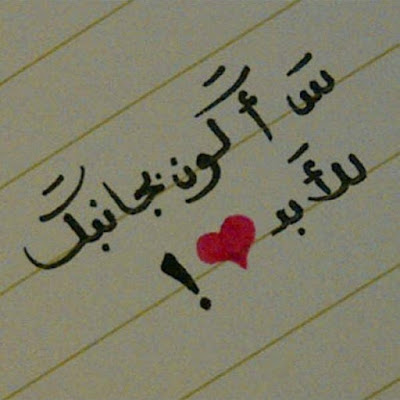 سَ أكَون بجانبكَ
للأَبد ❤ !